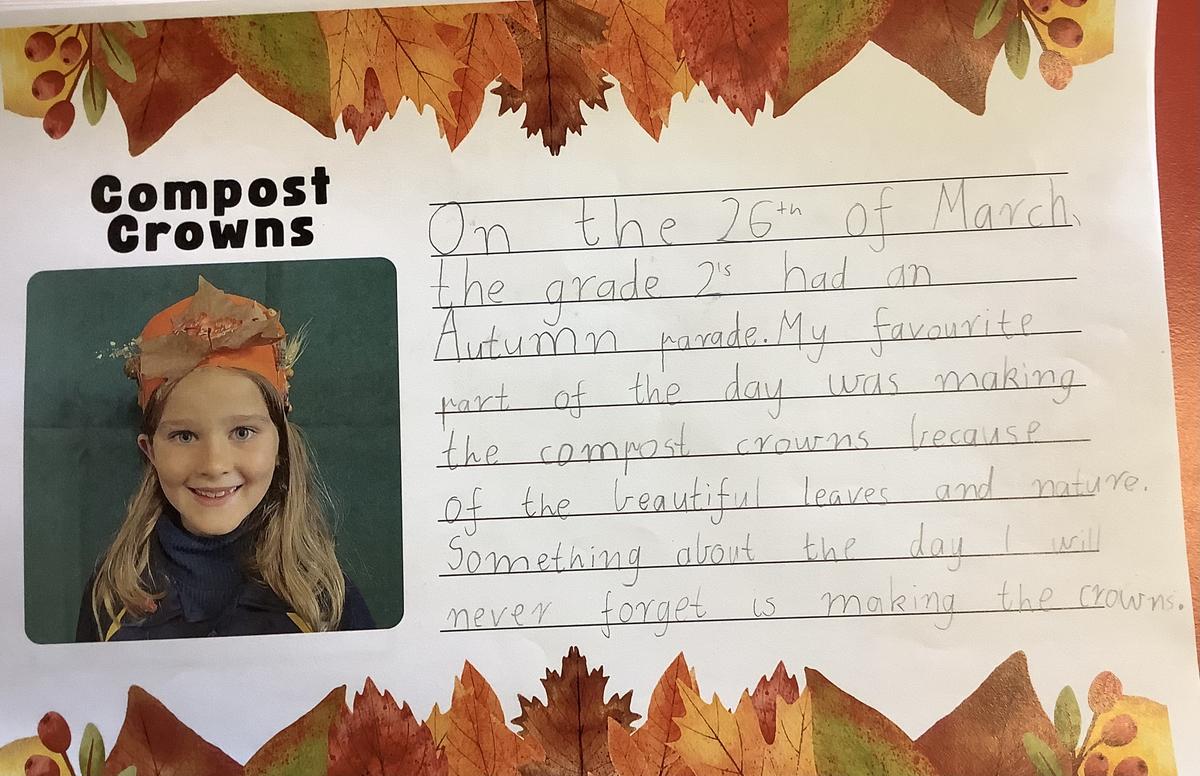 Compost
Crowns
On the 26th of March,
the grade 2's had an
Autumn parade. My favourite
part of the day was making
the compost crowns because
of the beautiful leaves and nature.
Something about the day I will
never forget is making the crowns.